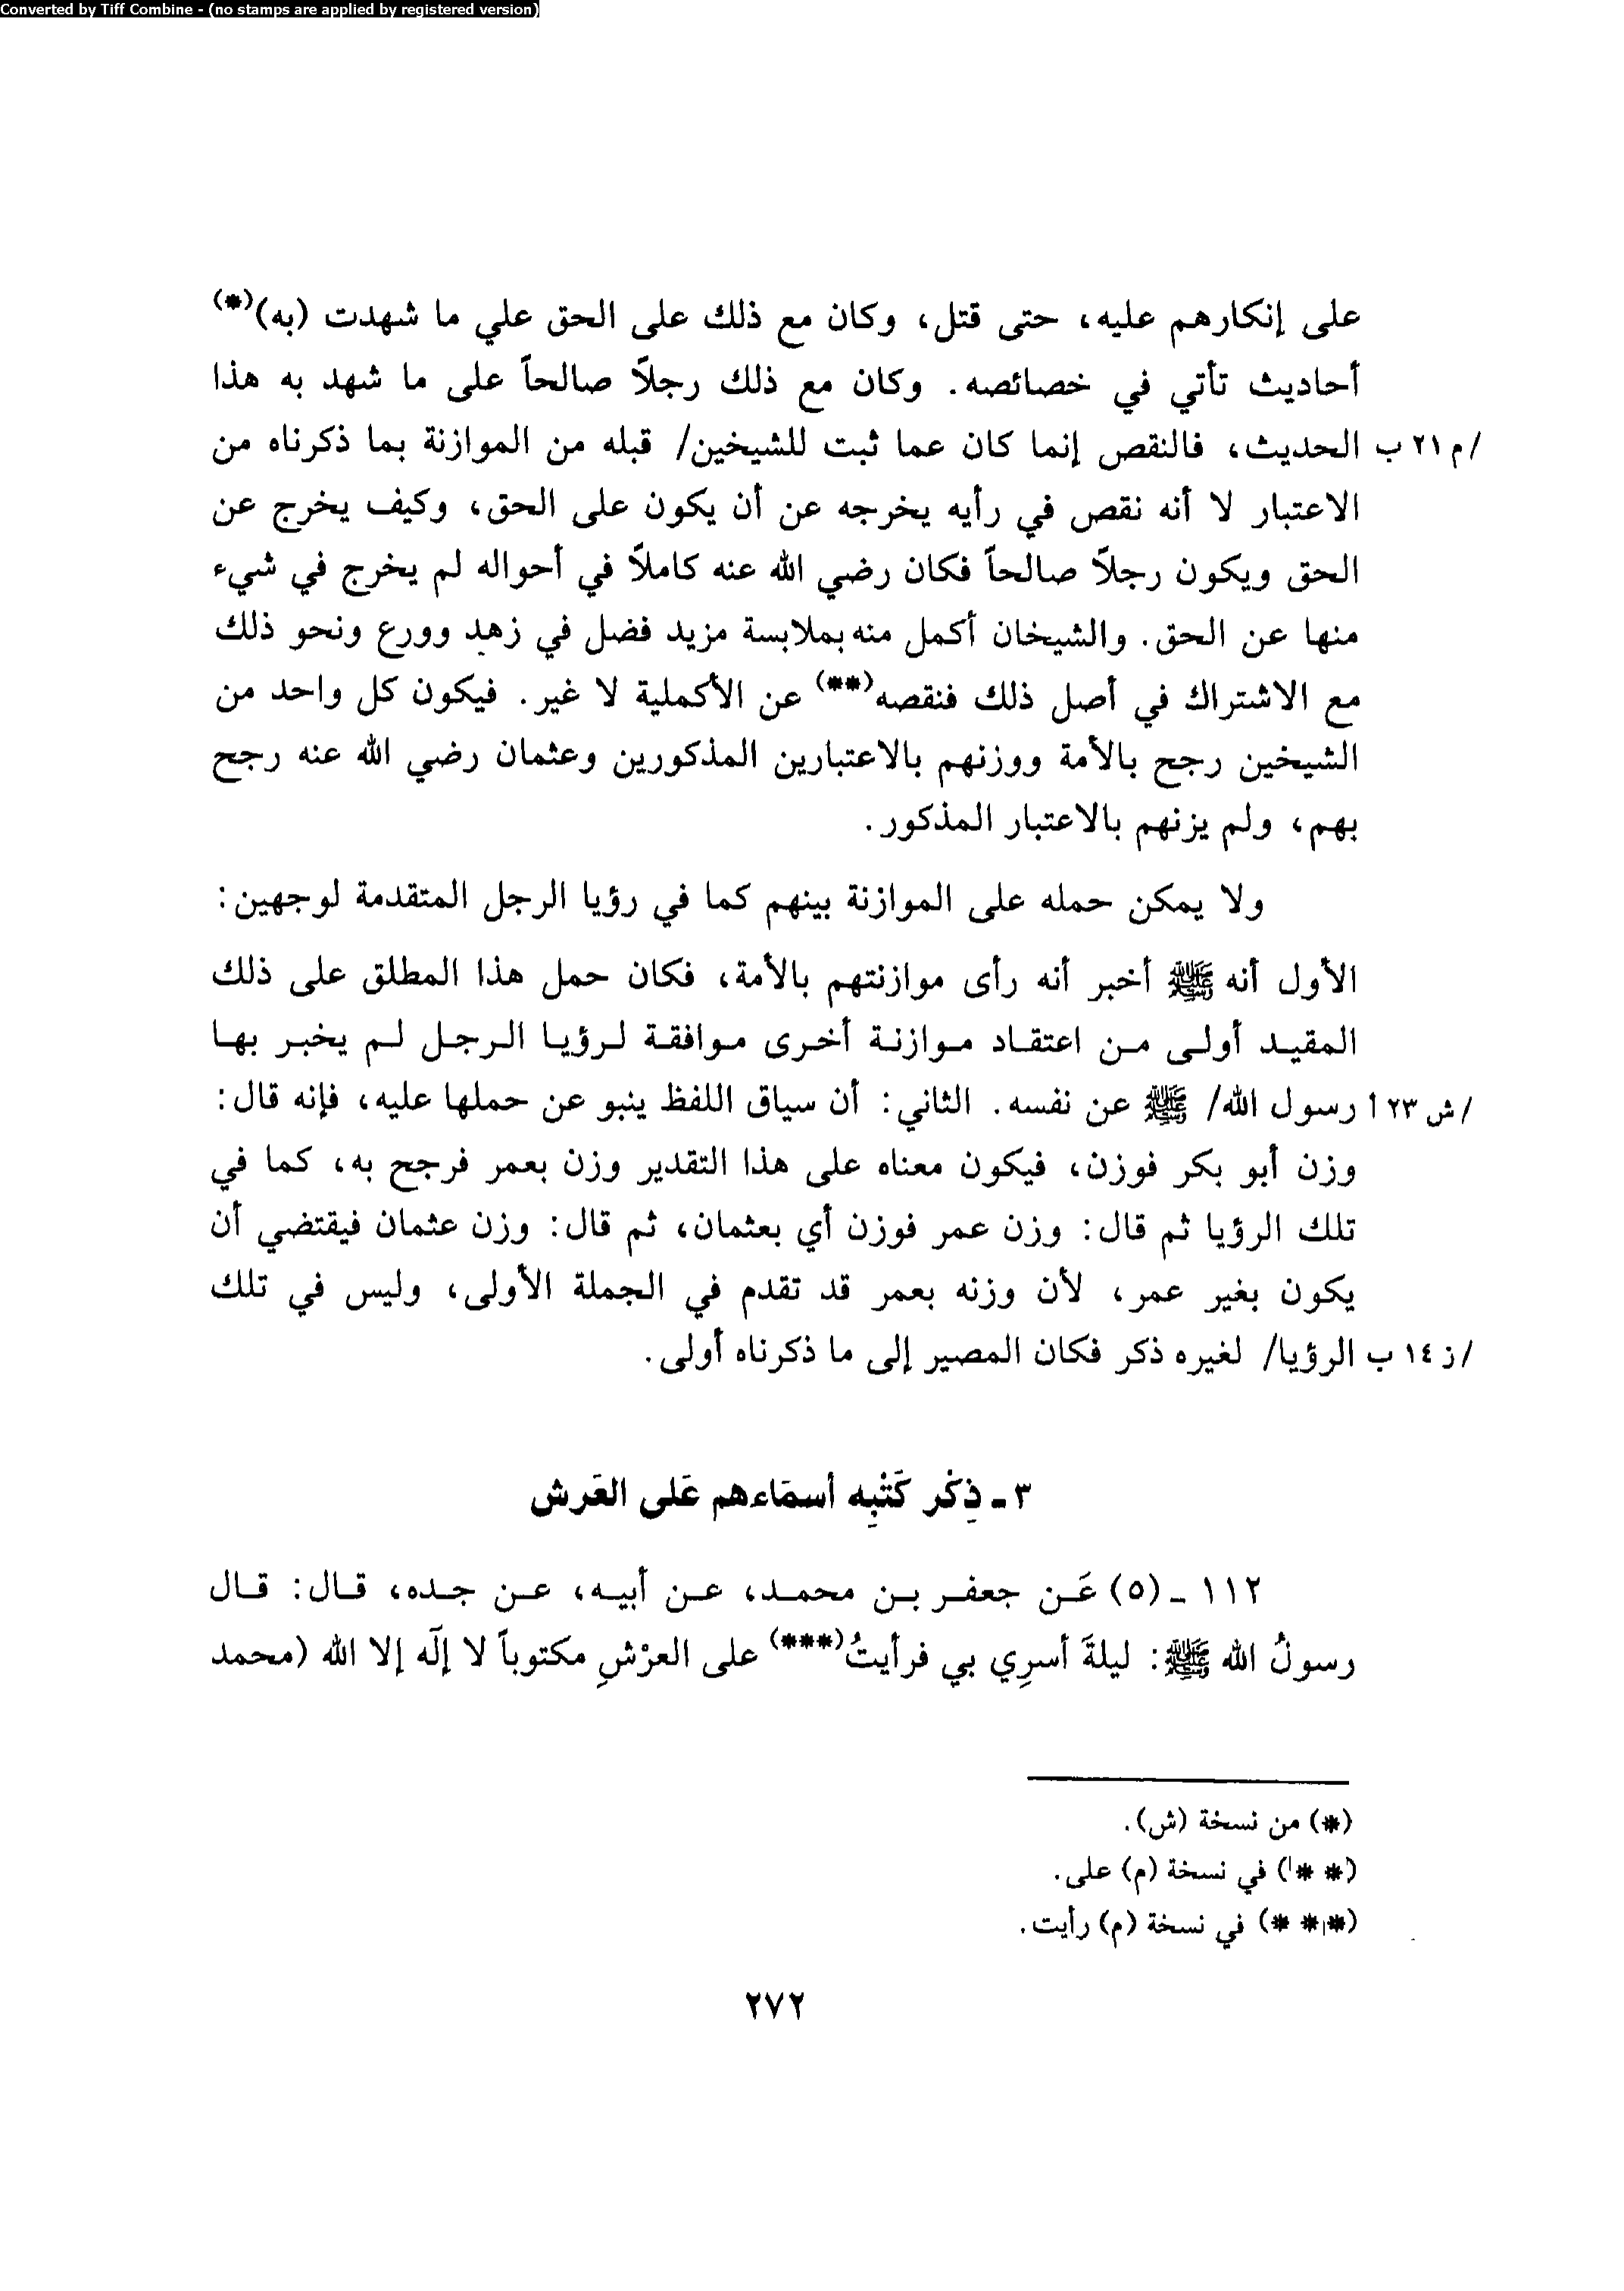 Converted by Tiff Combine - (no stamps are applied by registered version)
على إنكارهم عليه، حتى قتل، وكان مع ذلك على الحق علي ما شهدت (به)(*)
أحاديث تأتي في خصائصه. وكان مع ذلك رجلاً صالحاً على ما شهد به هذا
/م٢١ ب الحديث، فالنقص إنما كان عما ثبت للشيخين/ قبله من الموازنة بما ذكرناه من
الاعتبار لا أنه نقص في رأيه يخرجه عن أن يكون على الحق، وكيف يخرج عن
الحق ويكون رجلاً صالحاً فكان رضي الله عنه كاملاً في أحواله لم يخرج في شيء
منها عن الحق. والشيخان أكمل منه بملابسة مزيد فضل في زهد وورع ونحو ذلك
مع الاشتراك في أصل ذلك فنقصه(**) عن الأكملية لا غير. فيكون كل واحد من
الشيخين رجح بالأمة ووزنهم بالاعتبارين المذكورين وعثمان رضي الله عنه رجح
بهم، ولم يزنهم بالاعتبار المذكور.
ولا يمكن حمله على الموازنة بينهم كما في رؤيا الرجل المتقدمة لوجهين:
الأول أنه ﷺ أخبر أنه رأى موازنتهم بالأمة، فكان حمل هذا المطلق على ذلك
المقيد أولى من اعتقاد موازنة أخرى موافقة لرؤيا الرجل لم يخبر بها
/ش ٢٣ أ رسول الله/ ﷺ عن نفسه. الثاني: أن سياق اللفظ ينبو عن حملها عليه، فإنه قال:
وزن أبو بكر فوزن، فيكون معناه على هذا التقدير وزن بعمر فرجح به، كما في
تلك الرؤيا ثم قال: وزن عمر فوزن أي بعثمان، ثم قال: وزن عثمان فيقتضي أن
يكون بغير عمر، لأن وزنه بعمر قد تقدم في الجملة الأولى، وليس في تلك
/ز١٤ ب الرؤيا/ لغيره ذكر فكان المصير إلى ما ذكرناه أولى.
٣ - ذِكْر كَتْبِه أسمَاءهم عَلى العَرش
١١٢ - (٥) عَن جعفر بن محمد، عن أبيه، عن جده، قال: قال
رسولُ الله ﷺ: ليلةَ أسرِي بي فرأيتُ(***) على العرْشِ مكتوباً لا إلَه إلا الله (محمد
(*) من نسخة (ش).
(* *) في نسخة (م) على.
(* * *) في نسخة (م) رأيت.
٢٧٢